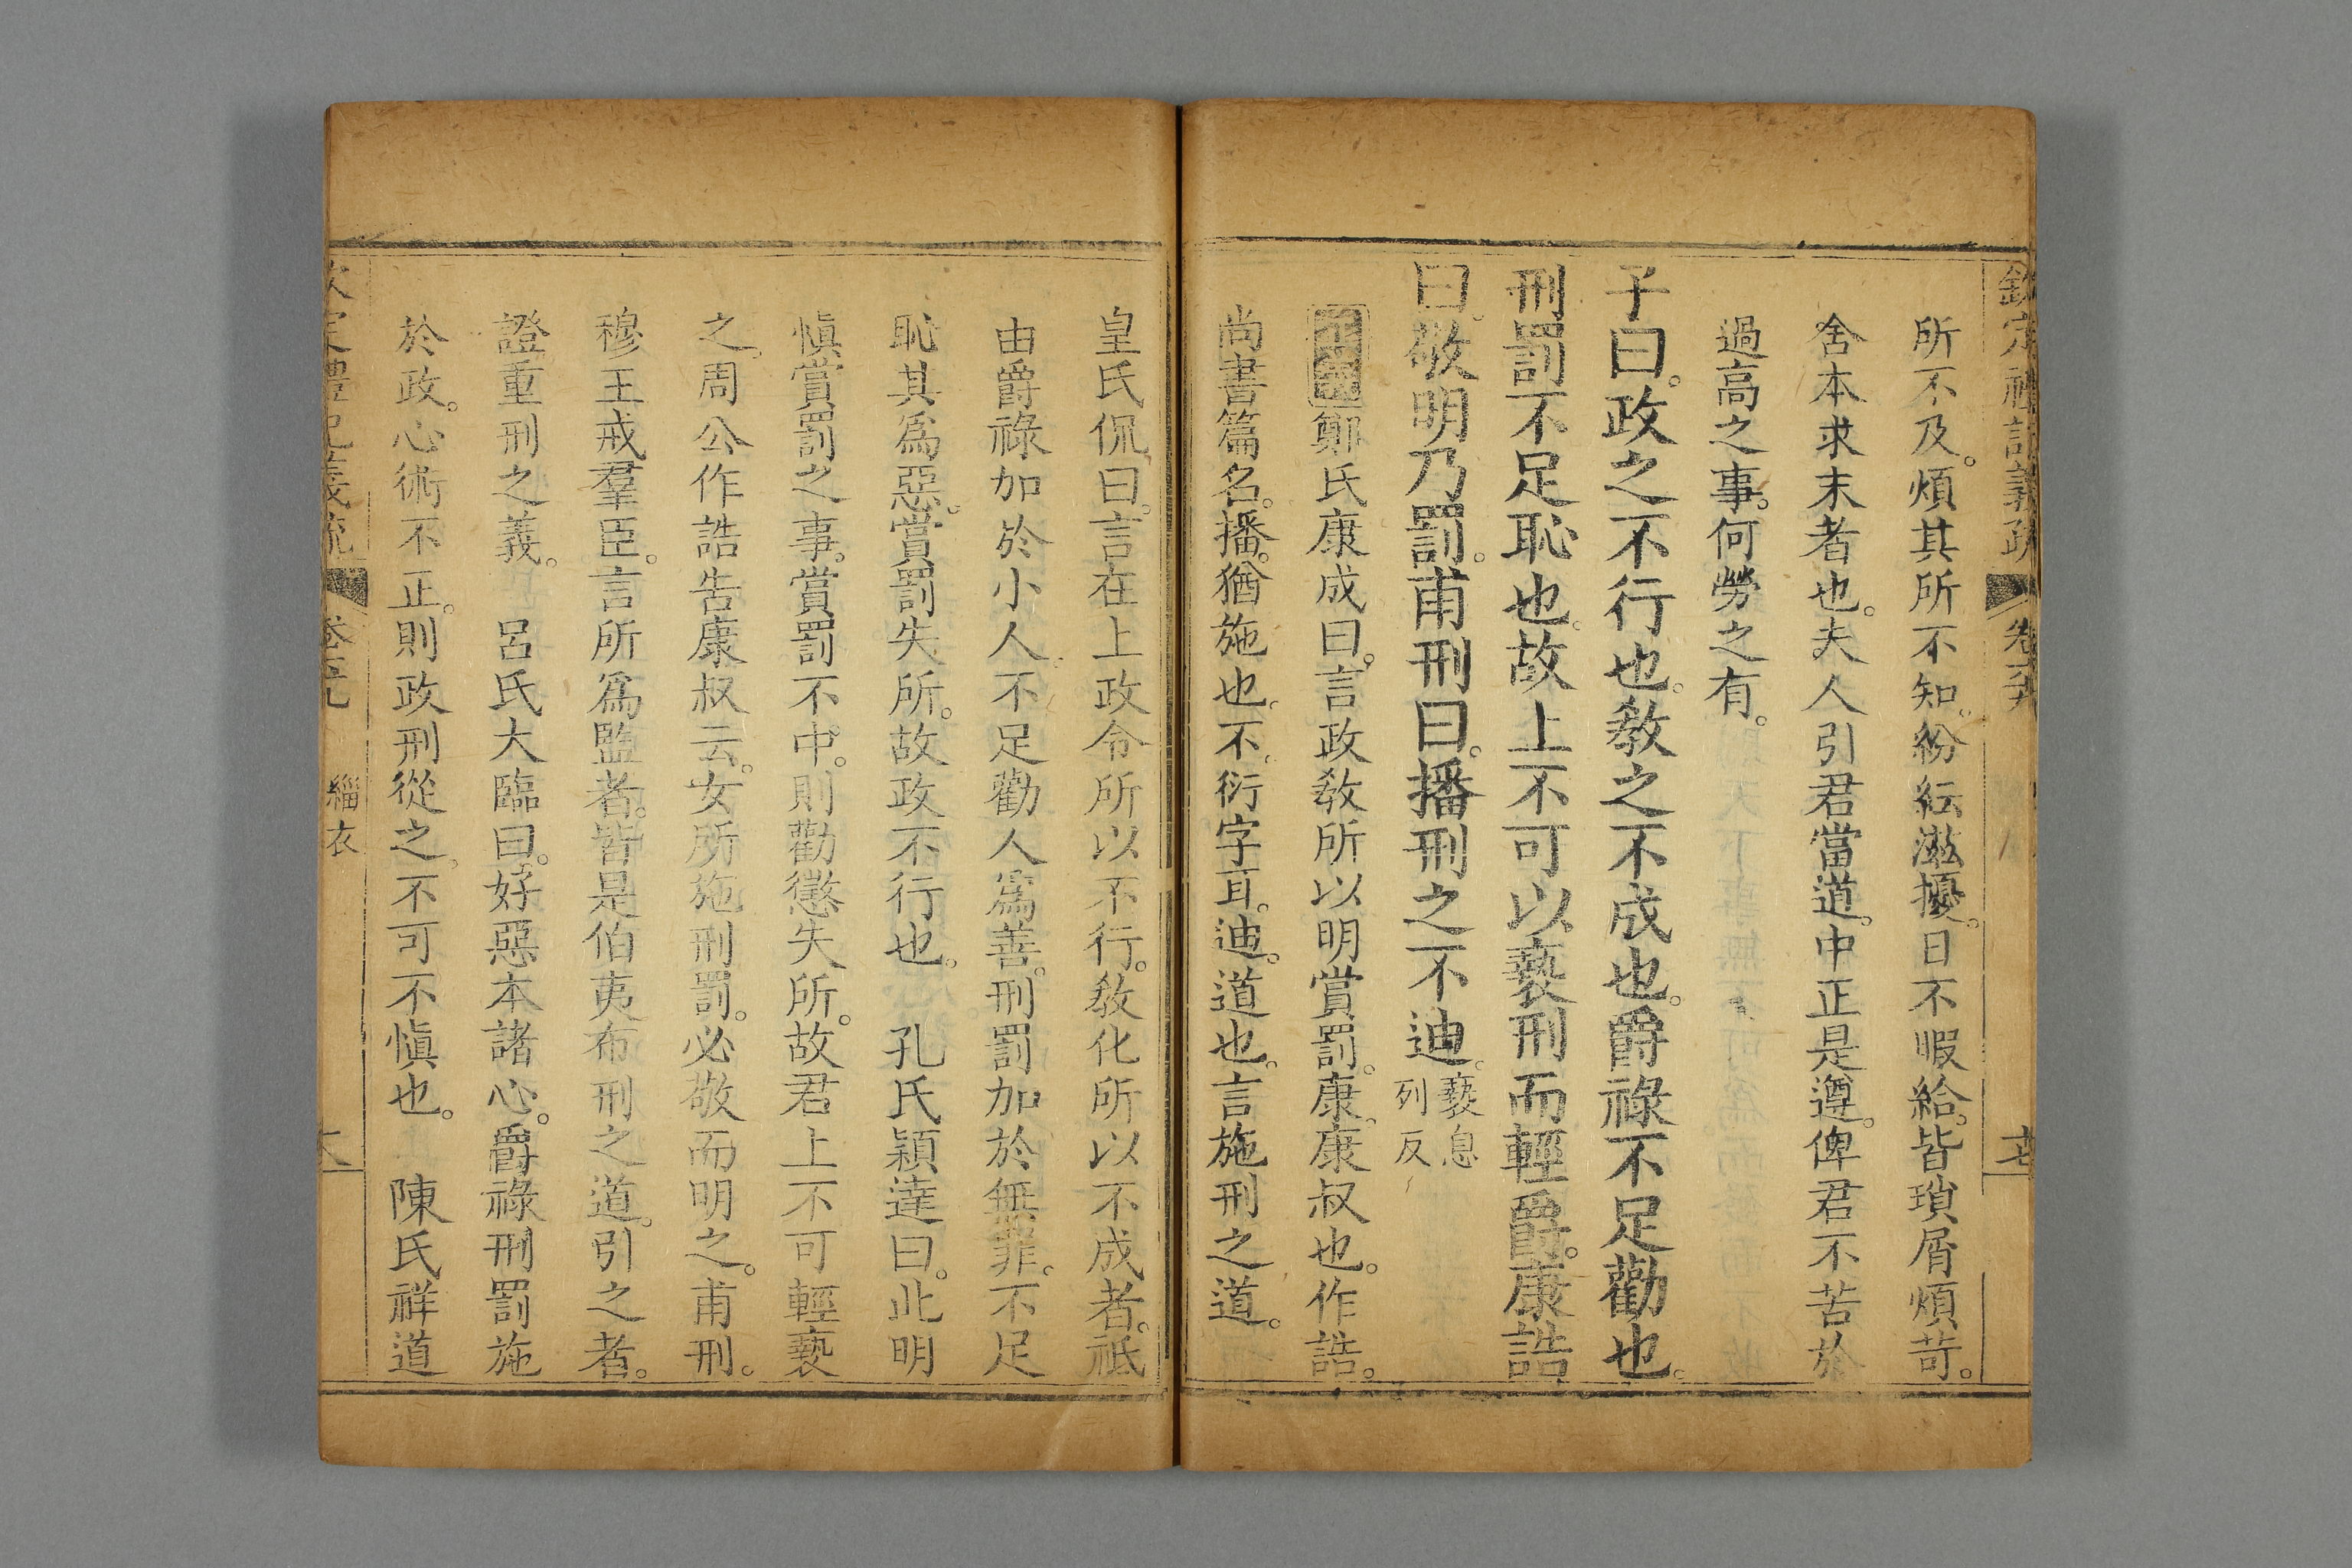 所不及。煩其所不知。紛紜滋擾。日不暇給。皆瑣屑煩苛。
舍本求末者也。夫人引君當道。中正是遵。俾君不苦於
過高之事。何勞之有。
子曰。政之不行也。敎之不成也。爵祿不足勸也。
刑罰不足恥也。故上不可以褻刑而輕爵。康誥
曰。敬明乃罰。甫刑曰。播刑之不迪。褻息列反
鄭氏康成曰。言政敎所以明賞罰。康。康叔也。作誥。
尚書篇名。播。猶施也。不。衍字耳。迪。道也。言施刑之道。
皇氏侃曰。言在上政令所以不行。敎化所以不成者。祗
由爵祿加於小人。不足勸人爲善。刑罰加於無罪。不足
恥其爲惡。賞罰失所。故政不行也。　孔氏穎達曰。此明
愼賞罰之事。賞罰不中。則勸懲失所。故君上不可輕褻
之。周公作誥告康叔云。女所施刑罰。必敬而明之。甫刑。
穆王戒羣臣。言所爲監者。皆是伯夷布刑之道。引之者。
證重刑之義。　呂氏大臨曰。好惡本諸心。爵祿刑罰施
於政。心術不正。則政刑從之。不可不愼也。　陳氏祥道
緇衣